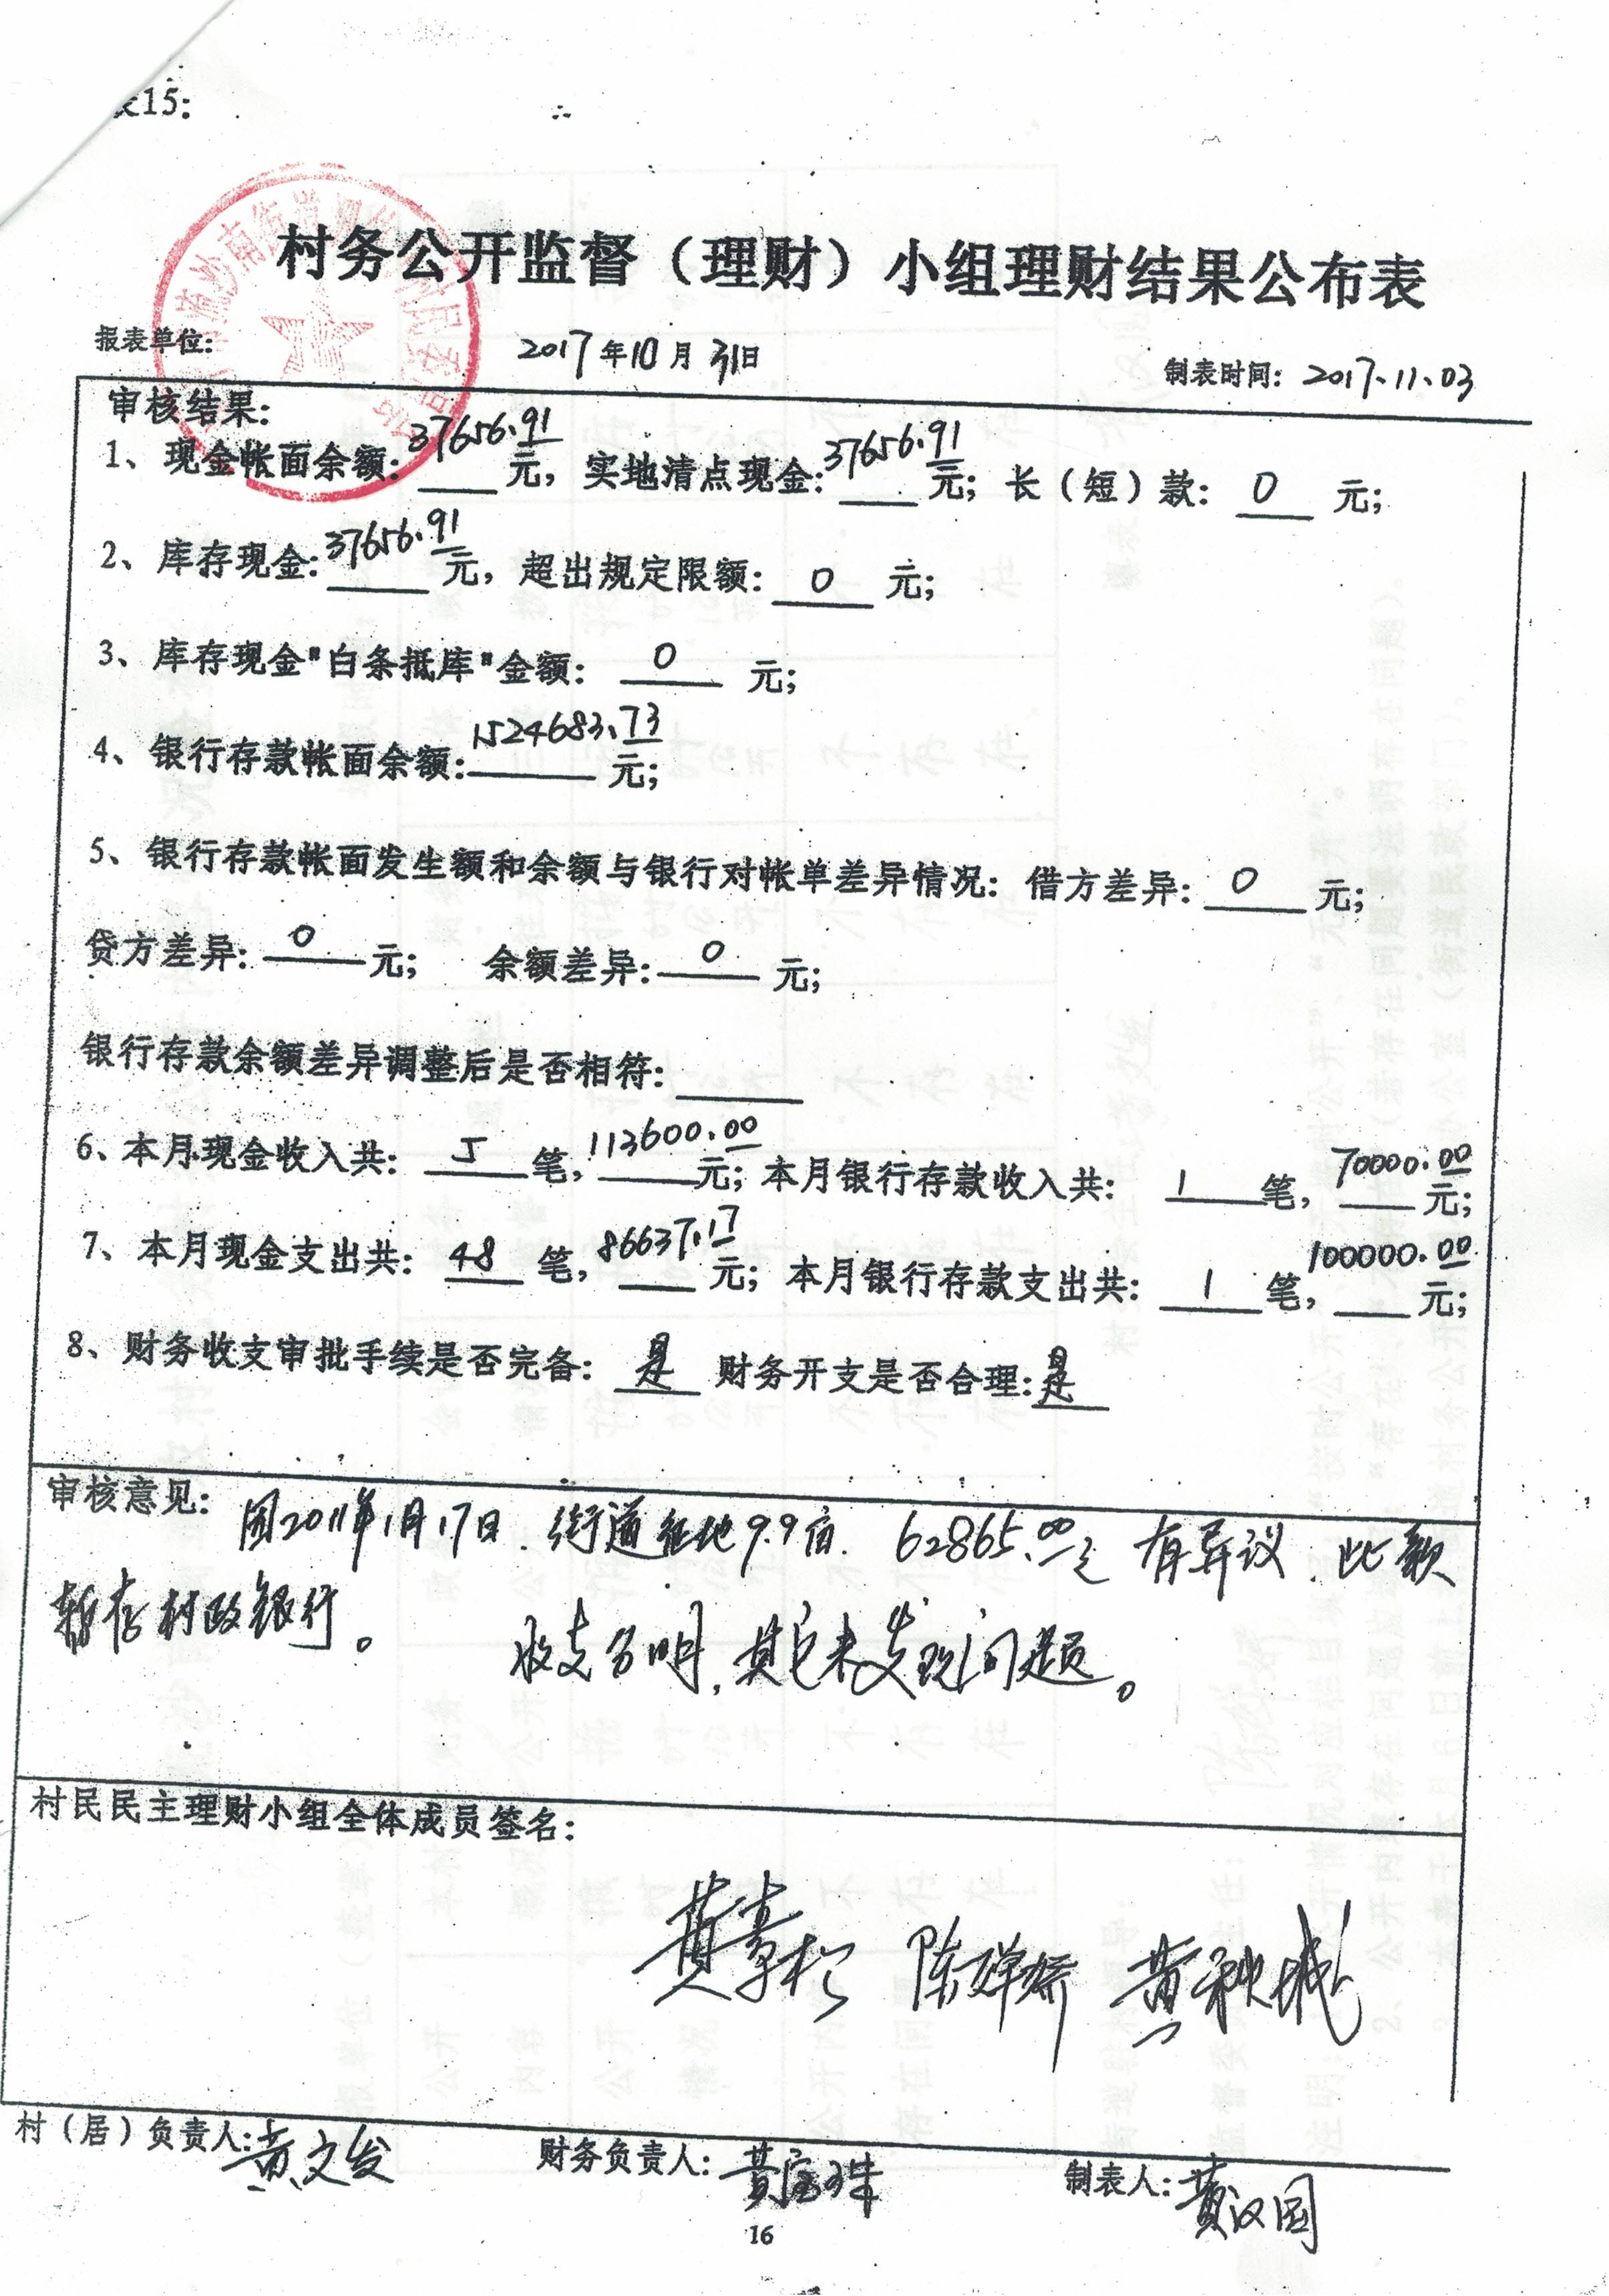 表15:
村务公开监督（理财）小组理财结果公布表
报表单位: 2017年10月31日 制表时间: 2017.11.03
审核结果:
1、现金帐面余额: 37656.91元, 实地清点现金: 37656.91元; 长（短）款: 0元;
2、库存现金: 37656.91元, 超出规定限额: 0元;
3、库存现金"白条抵库"金额: 0元;
4、银行存款帐面余额: 1524683.73元;
5、银行存款帐面发生额和余额与银行对帐单差异情况: 借方差异: 0元;
贷方差异: 0元; 余额差异: 0元;
银行存款余额差异调整后是否相符:
6、本月现金收入共: 5笔, 113600.00元; 本月银行存款收入共: 1笔, 70000.00元;
7、本月现金支出共: 48笔, 86637.17元; 本月银行存款支出共: 1笔, 100000.00元;
8、财务收支审批手续是否完备: 是 财务开支是否合理: 是
审核意见: 因2011年1月17日.街道征地9.9亩.62865.00元有异议.此款
暂存村政银行。 收支分明,其它未发现问题。
村民民主理财小组全体成员签名:
陈婵娇 黄秋城
村（居）负责人: 黄文发 财务负责人: 黄宝珠 制表人: 黄汉国
16